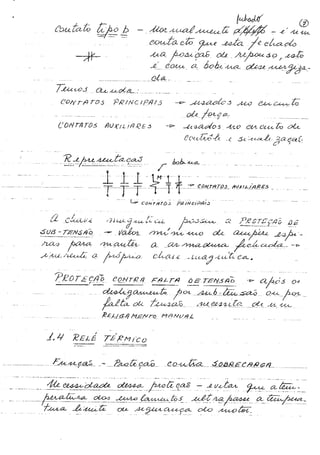 fechado
Contato tipo b - Normalmente - é um
contacto que está fechado
na posição de repouso, isto
é com a bobina desenergiza-
da.
Temos ainda.
CONTATOS PRINCIPAIS → usados no circuito
de força.
CONTATOS AUXILIARES → usados no circuito de
controle e sinalização.
Representação
bobina
CONTATOS AUXILIARES
CONTATOS PRINCIPAIS
A chave magnética possui a PROTEÇÃO DE
SUB-TENSÃO → valor mínimo de ampère espi-
ras para manter a armadura fechada →
a própria chave magnética.
PROTEÇÃO CONTRA FALTA DE TENSÃO → após o
desligamento por sub-tensão ou por
falta de tensão, necessita de um
RELIGAMENTO MANUAL
1.4 RELÉ TÉRMICO
Função - Proteção contra SOBRECARGA
Necessidade dessa proteção - evitar que a tem-
peratura dos enrolamentos ultrapasse a tempera-
tura limite de segurança do motor.